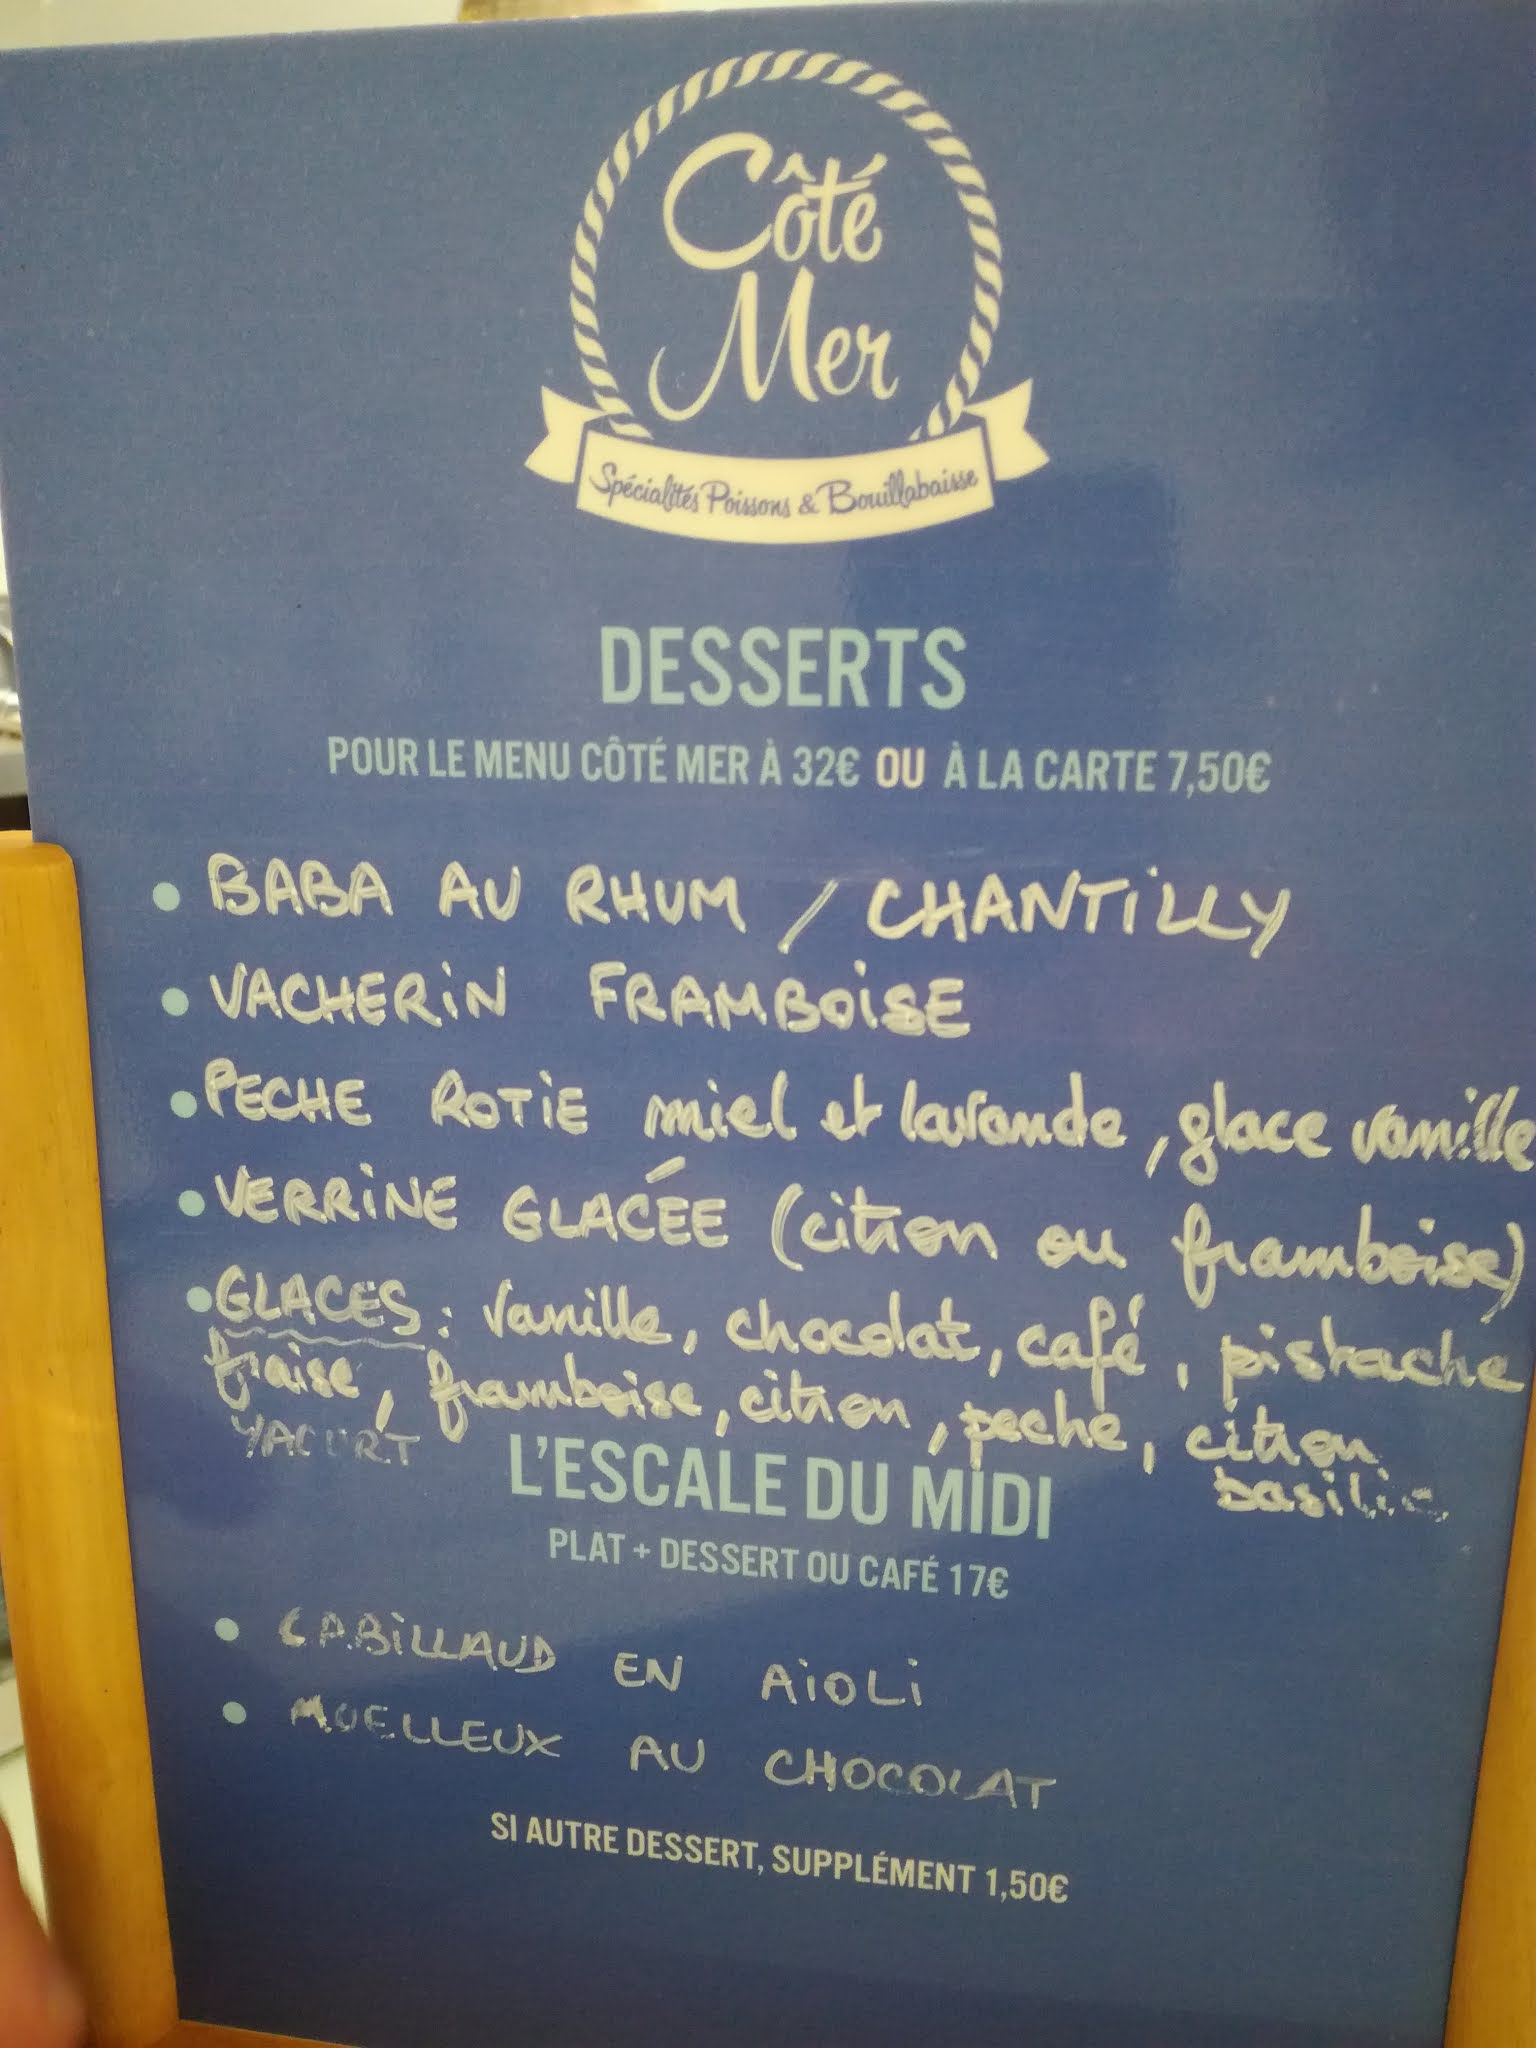 Côté
Mer
Spécialités Poissons & Bouillabaisse
DESSERTS
POUR LE MENU CÔTÉ MER À 32€ OU À LA CARTE 7,50€
• BABA AU RHUM / CHANTILLY
• VACHERIN FRAMBOISE
• PECHE ROTIE miel et lavande, glace vanille
• VERRINE GLACÉE (citron ou framboise)
• GLACES : vanille, chocolat, café, pistache
fraise, framboise, citron, peche, citron
basilic
YAOURT
L'ESCALE DU MIDI
PLAT + DESSERT OU CAFÉ 17€
• CABILLAUD EN AIOLI
• MOELLEUX AU CHOCOLAT
SI AUTRE DESSERT, SUPPLÉMENT 1,50€